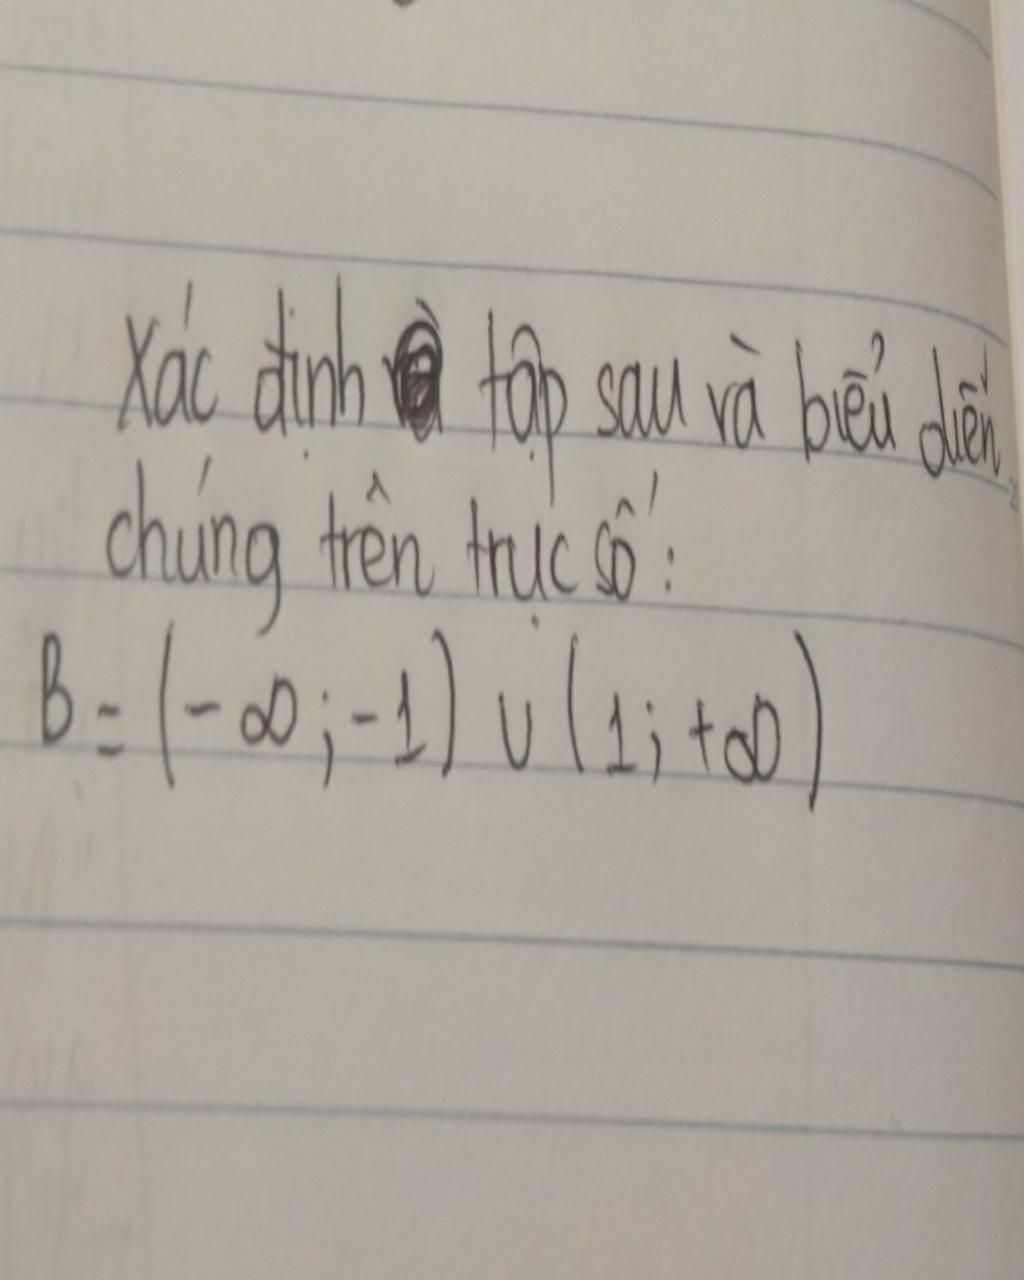 Xác định tập sau và biểu diễn
chúng trên trục số:
B = (-∞; -1) ∪ (1; +∞)